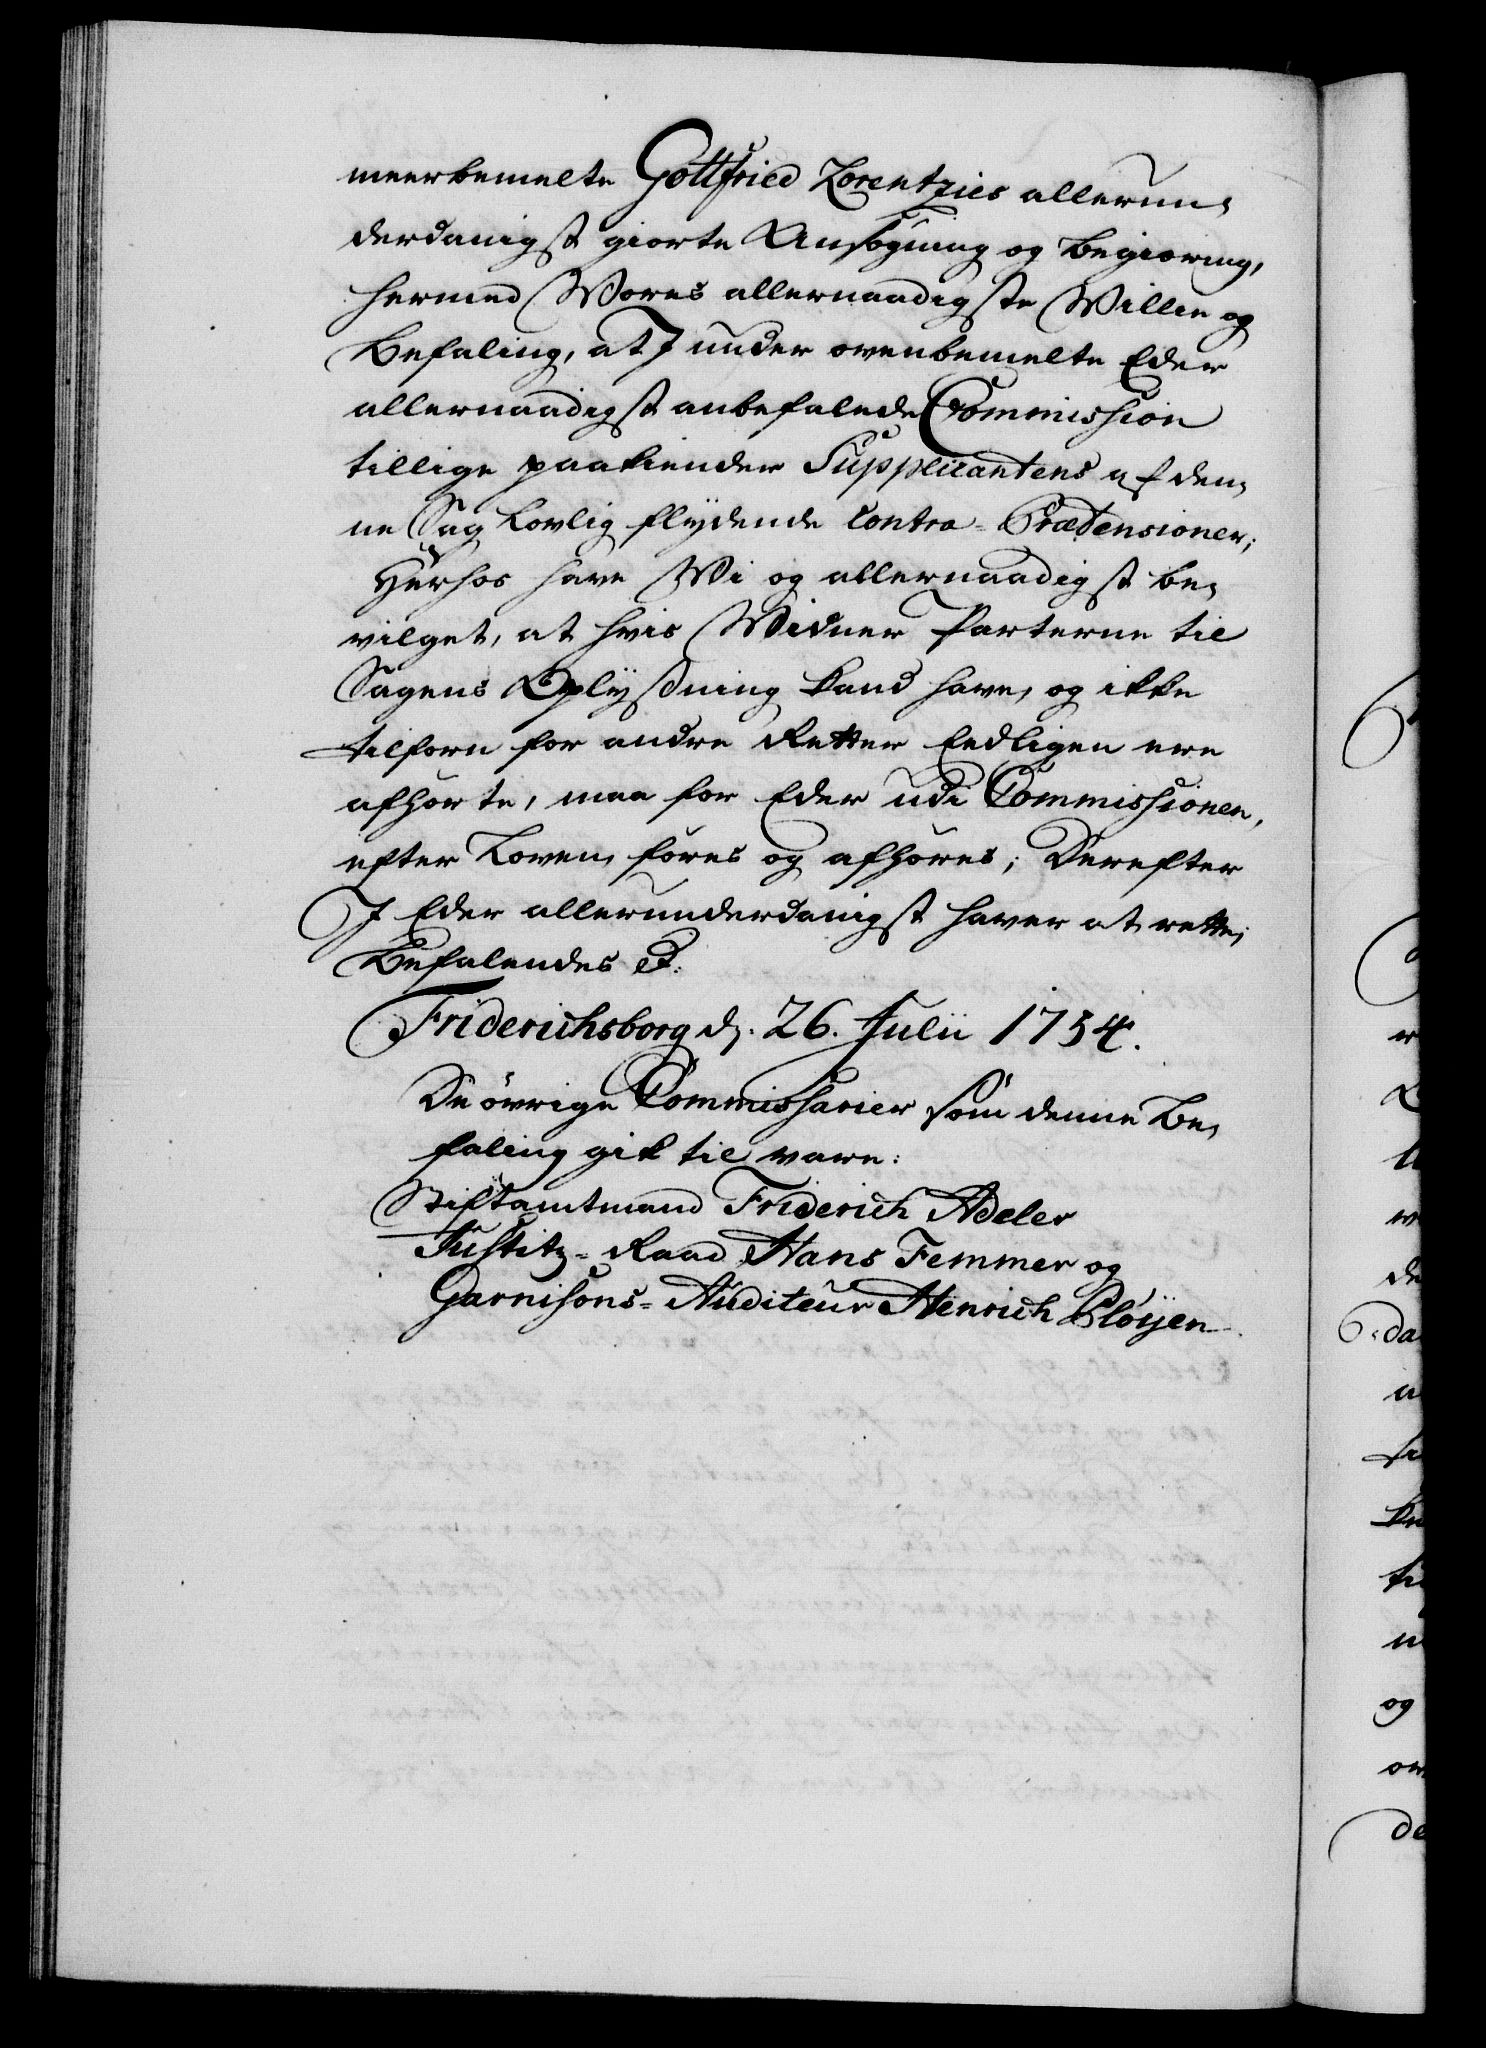 meerbemelte Gottfried Lorentzies allerun-
derdanigst giorte Ansøgning og begiæring,
hermed Wores allernaadigste Willie og
Befaling, at I under ovenbemelte Eder
allernaadigst anbefalede Commission
tillige paakiender Supplicantens af den-
ne Sag lovlig flydende Contra-Prætensioner;
Herhos have Wi og allernaadigst be-
vilget, at hvis Widner Parterne til
Sagens Oplysning kand have, og ikke
tilforn for andre Retter Eedligen ere
afhørte, maa for Eder udi Commissionen,
efter Loven, føres og afhøres; Derefter
I Eder allerunderdanigst haver at rette,
Befalendes
Friderichsborg d. 26. Julii 1754.
De øvrige Commissarier som denne Be-
faling gik til vare:
Stiftamtmand Friderich Adeler
Justitz-Raad Hans Femmer og
Garnisons-Auditeur Henrich Pløyen